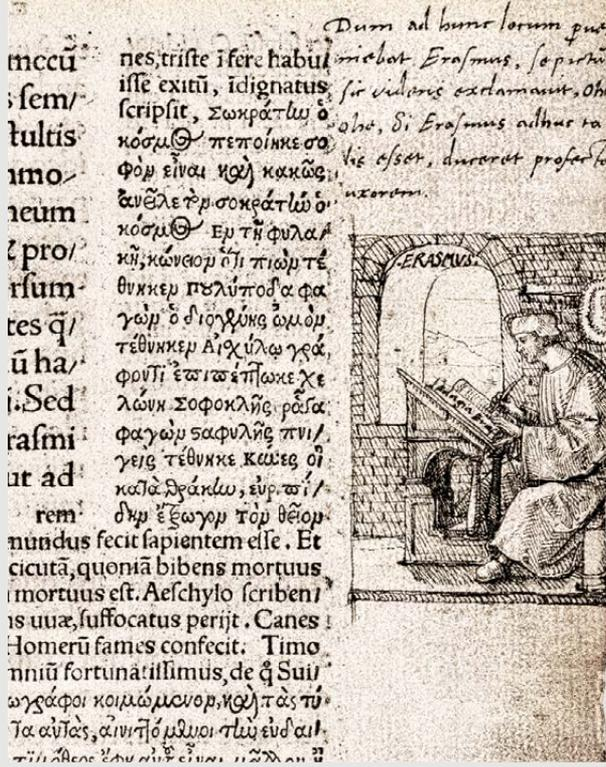 mccū
s sem/
stultis
mmo/
neum
& pro/
rsum
tes q̄/
ū ha/
i. Sed
rasmi
ut ad
rem
nes, triste i fere habu/
isse exitū, īdignatus
scripsit, Σωκράτίω ὁ
κόσμΘ πεποίηκε σο
φὸμ εἶναι καὶ κακῶς
ἀνεῖλε τὸμ σοκράτίω ὁ
κόσμΘ Εμ τῇ φυλα/
κῇ, κώνειομ ὅτι πιὼμ τέ
θνηκεμ πουλύποδα φα
γὼμ ὁ διογένης ὠμὸμ
τέθνηκεμ Αἰχύλω γρά,
φοντι ἐπιπέπτωκε χε
λώνη. Σοφοκλῆς ῥᾶγα
φαγὼμ σαφυλῆς πνι/
γεὶς τέθνηκε Κύνες οἱ
κατὰ Θράκίω, ἐυρ.πί/
δημ ἔτρωγομ τὸμ θεῖομ
mundus fecit sapientem esse. Et
cicutā, quoniā bibens mortuus
mortuus est. Aeschylo scriben/
ns uuæ, suffocatus perijt. Canes
Homerū fames confecit. Timo
mniū fortunatissimus, de q̄ Sui/
ωγράφοι κοιμώμενομ, καὶ τὰς τύ
τα αὐτᾶς, αἰνιττόμενοι τίω ἐυδαι/
Dum ad hunc locum perve
niebat Erasmus, se pictū
sic videns exclamavit, ohe
ohe, si Erasmus adhuc ta
lis esset, duceret profecto
uxorem.
ERASMUS.